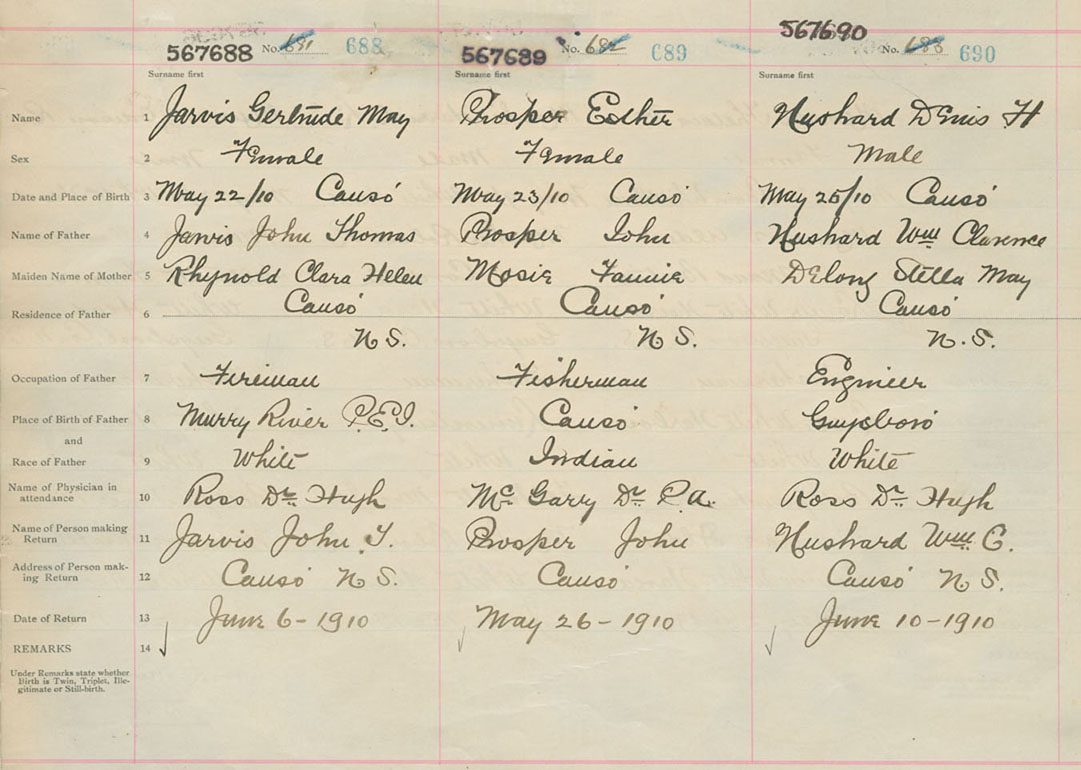 567688 No. 691 688 567689 No. 692 689 567690 No. 693 690
Surname first Surname first Surname first
Name 1 Jarvis Gertrude May Prosper Esther Hushard Denis H
Sex 2 Female Female Male
Date and Place of Birth 3 May 22/10 Canso May 23/10 Canso May 25/10 Canso
Name of Father 4 Jarvis John Thomas Prosper John Hushard Wm Clarence
Maiden Name of Mother 5 Rhynold Clara Helen Mosie Fannie Delong Stella May
Canso Canso Canso
Residence of Father 6
N S. N S. N. S.
Occupation of Father 7 Fireman Fisherman Engineer
Place of Birth of Father 8 Murry River P.E.I. Canso Guysboro
and
Race of Father 9 White Indian White
Name of Physician in
attendance 10 Ross Dr. Hugh Mc Garry Dr. P.A. Ross Dr. Hugh
Name of Person making
Return 11 Jarvis John T. Prosper John Hushard Wm. C.
Address of Person mak-
ing Return 12 Canso N S. Canso Canso N S.
Date of Return 13 June 6-1910 May 26-1910 June 10-1910
REMARKS 14
Under Remarks state whether
Birth is Twin, Triplet, Ille-
gitimate or Still-birth.